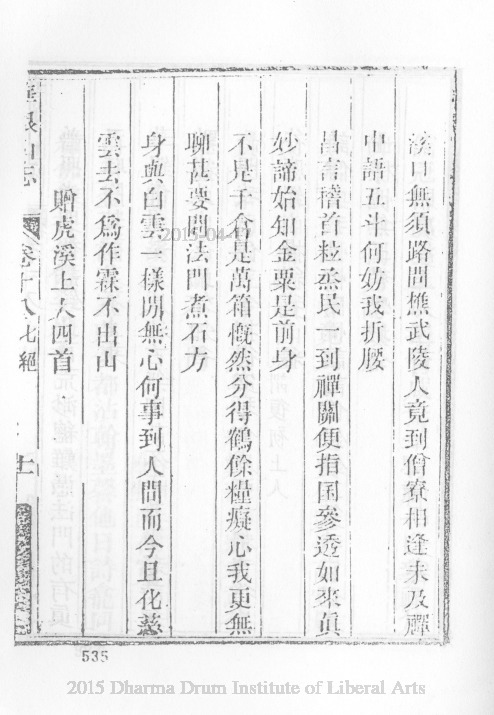 溪口無須路問樵武陵人竟到僧寮相逢未及禪
中語五斗何妨我折腰
昌言稽首粒烝民一到禪關便指囷參透如來眞
妙諦始知金粟是前身
不是千倉是萬箱慨然分得鶴餘糧癡心我更無
聊甚要問法門煮石方
身與白雲一樣閒無心何事到人間而今且化慈
雲去不爲作霖不出山
贈虎溪上人四首
山志
卷十八七絕
535
2015 Dharma Drum Institute of Liberal Arts